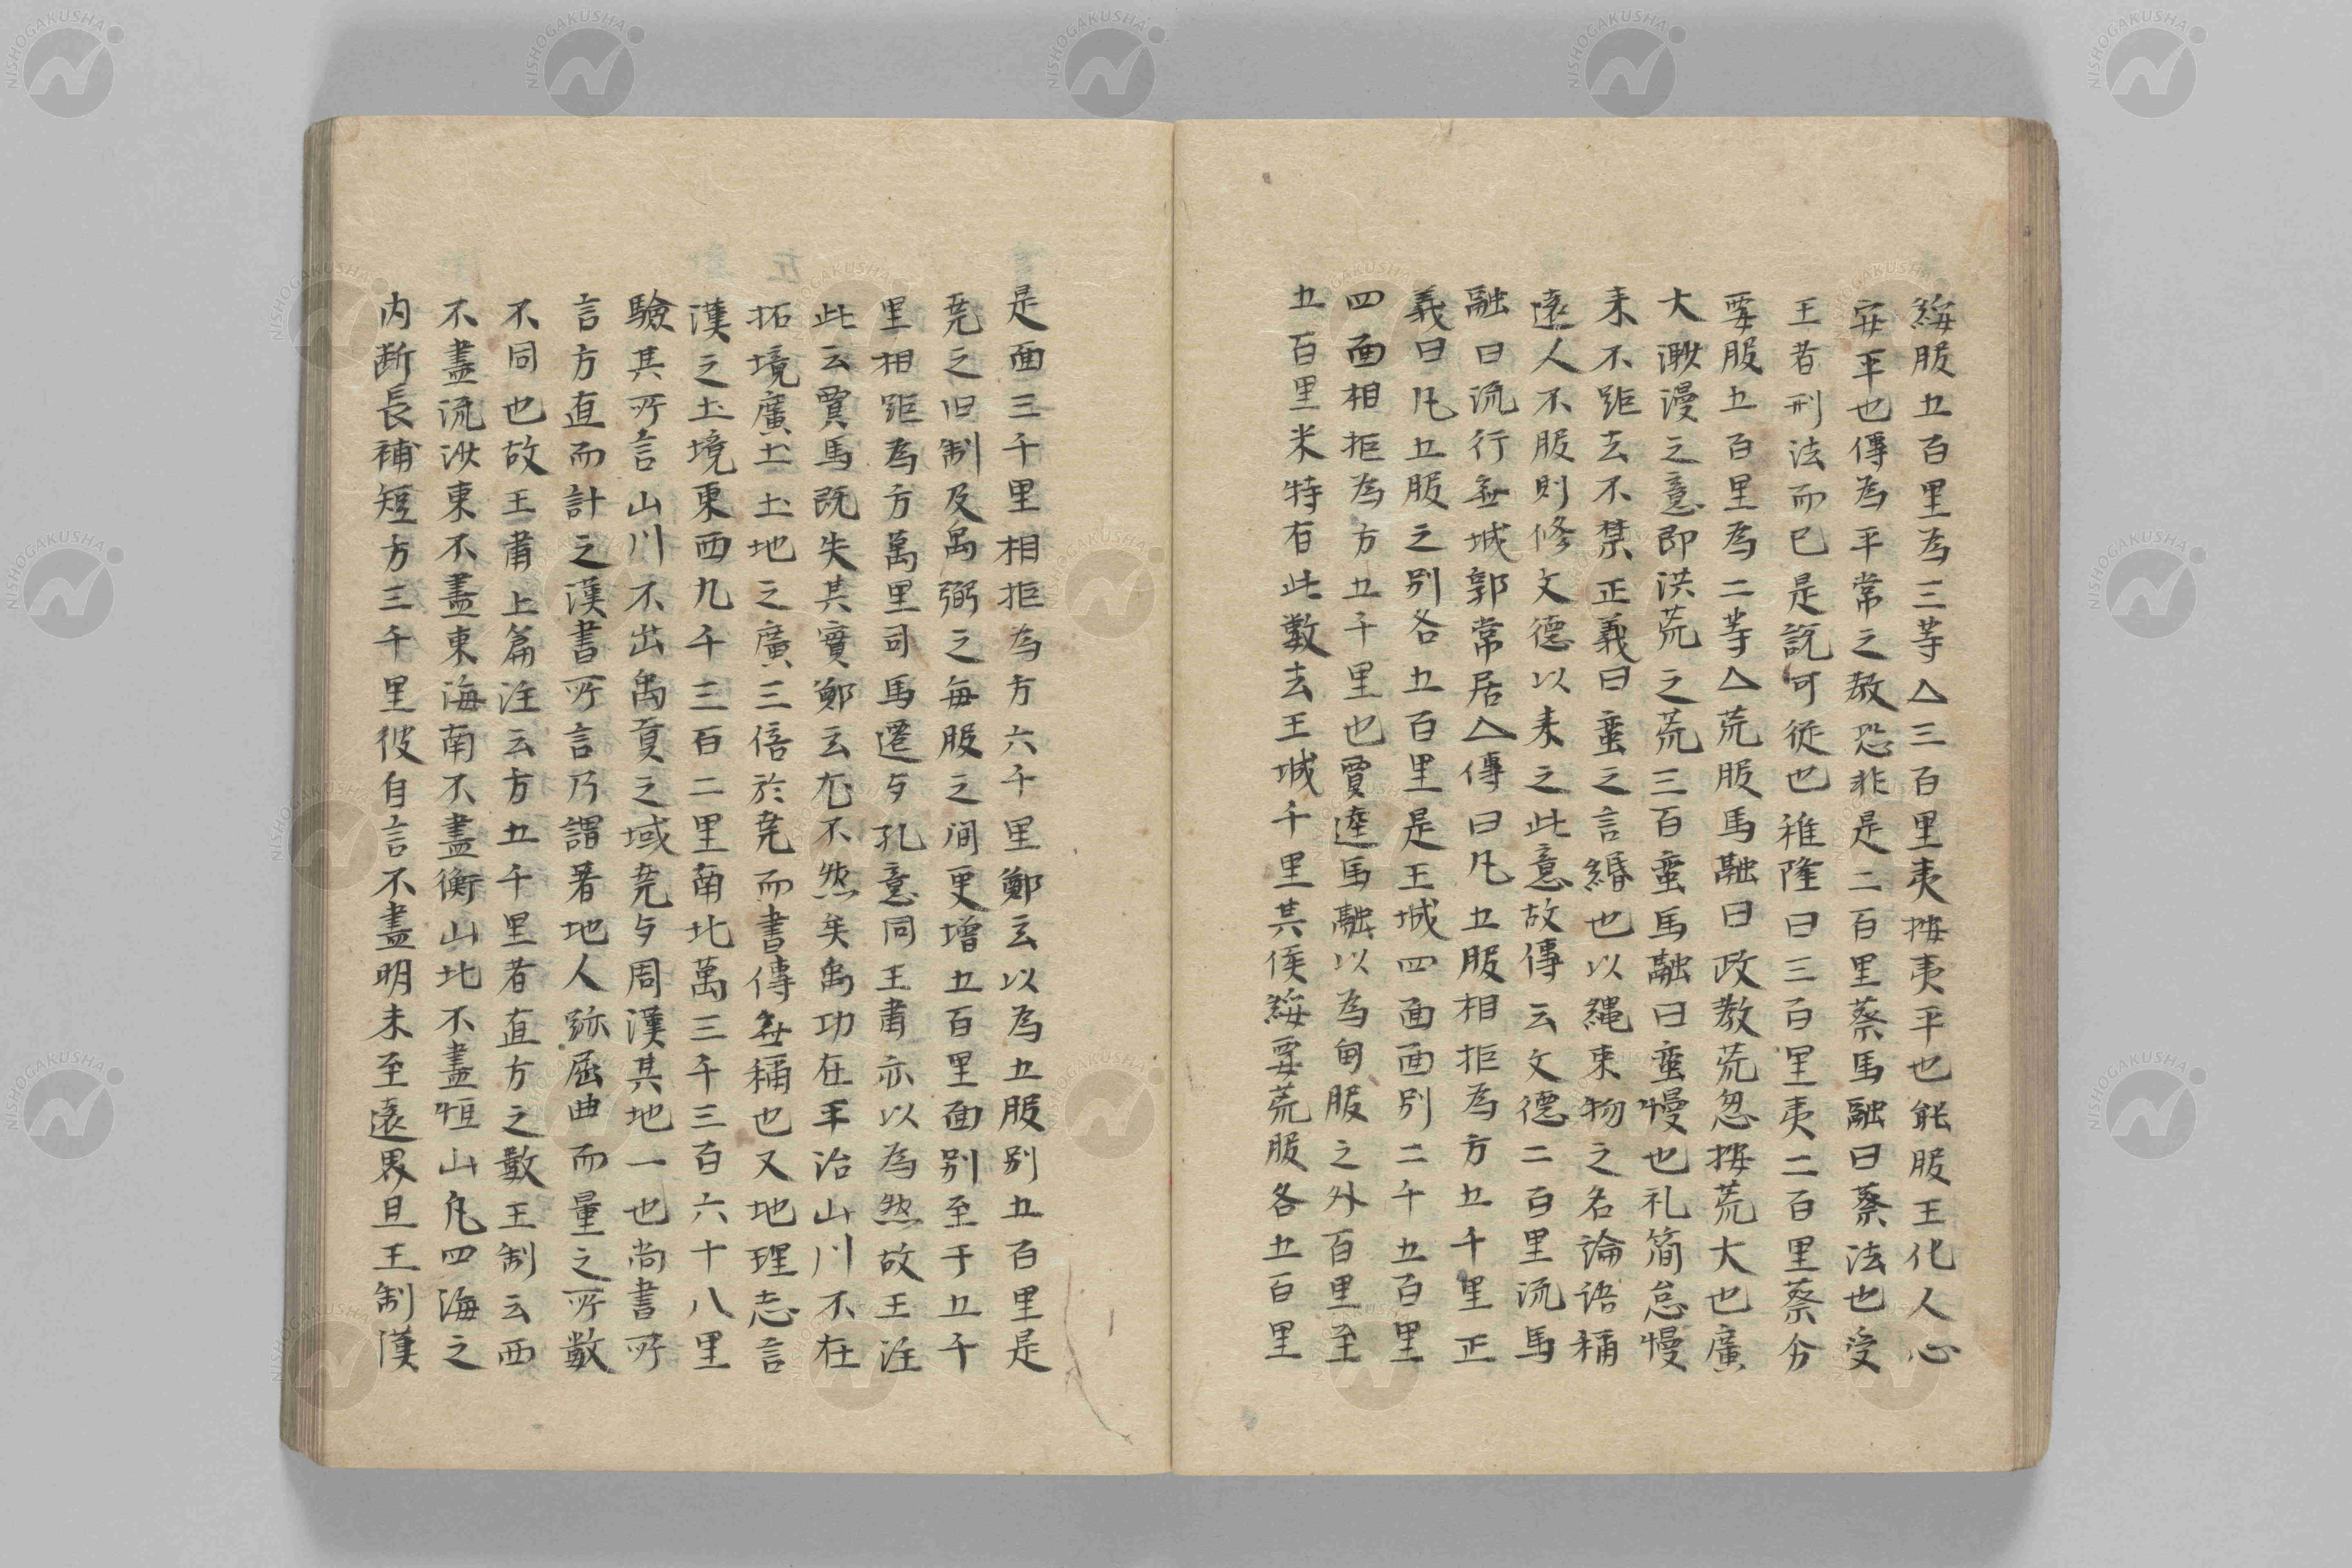 綏服五百里為三等△三百里夷按夷平也能服王化人心
安平也傳為平常之教恐非是二百里蔡馬融曰蔡法也受
王者刑法而已是説可從也稚隆曰三百里夷二百里蔡分
要服五百里為二等△荒服馬融曰政教荒忽按荒大也廣
大漫之意即洪荒之荒三百蛮馬融曰蛮慢也礼簡怠慢
来不距去不禁正義曰蛮之言緡也以縄束物之名論语稱
遠人不服則修文德以来之此意故傳云文德二百里流馬
融曰流行無城郭常居△傳曰凡五服相拒為方五千里正
義曰凡五服之別各五百里是王城四面面別二千五百里
四面相拒為方五千里也賈逵馬融以為甸服之外百里至
五百里米特有此數去王城千里其侯綏要荒服各五百里
是面三千里相拒為方六千里鄭玄以為五服別五百里是
堯之旧制及禹弼之每服之间更增五百里面別至于五千
里相距為方萬里司馬遷与孔意同王肅亦以為然故王注
此云賈馬既失其實鄭玄尤不然矣禹功在平治山川不在
拓境廣土土地之廣三倍於堯而書傳無稱也又地理志言
漢之土境東西九千三百二里南北萬三千三百六十八里
驗其所言山川不出禹貢之域堯与周漢其地一也尚書所
言方直而計之漢書所言乃謂著地人跡屈曲而量之所數
不同也故王肅上篇注云方五千里者直方之數王制云西
不盡流沙東不盡東海南不盡衡山北不盡恒山凡四海之
内断長補短方三千里彼自言不盡明未至遠界且王制漢
NISHOGAKUSHA